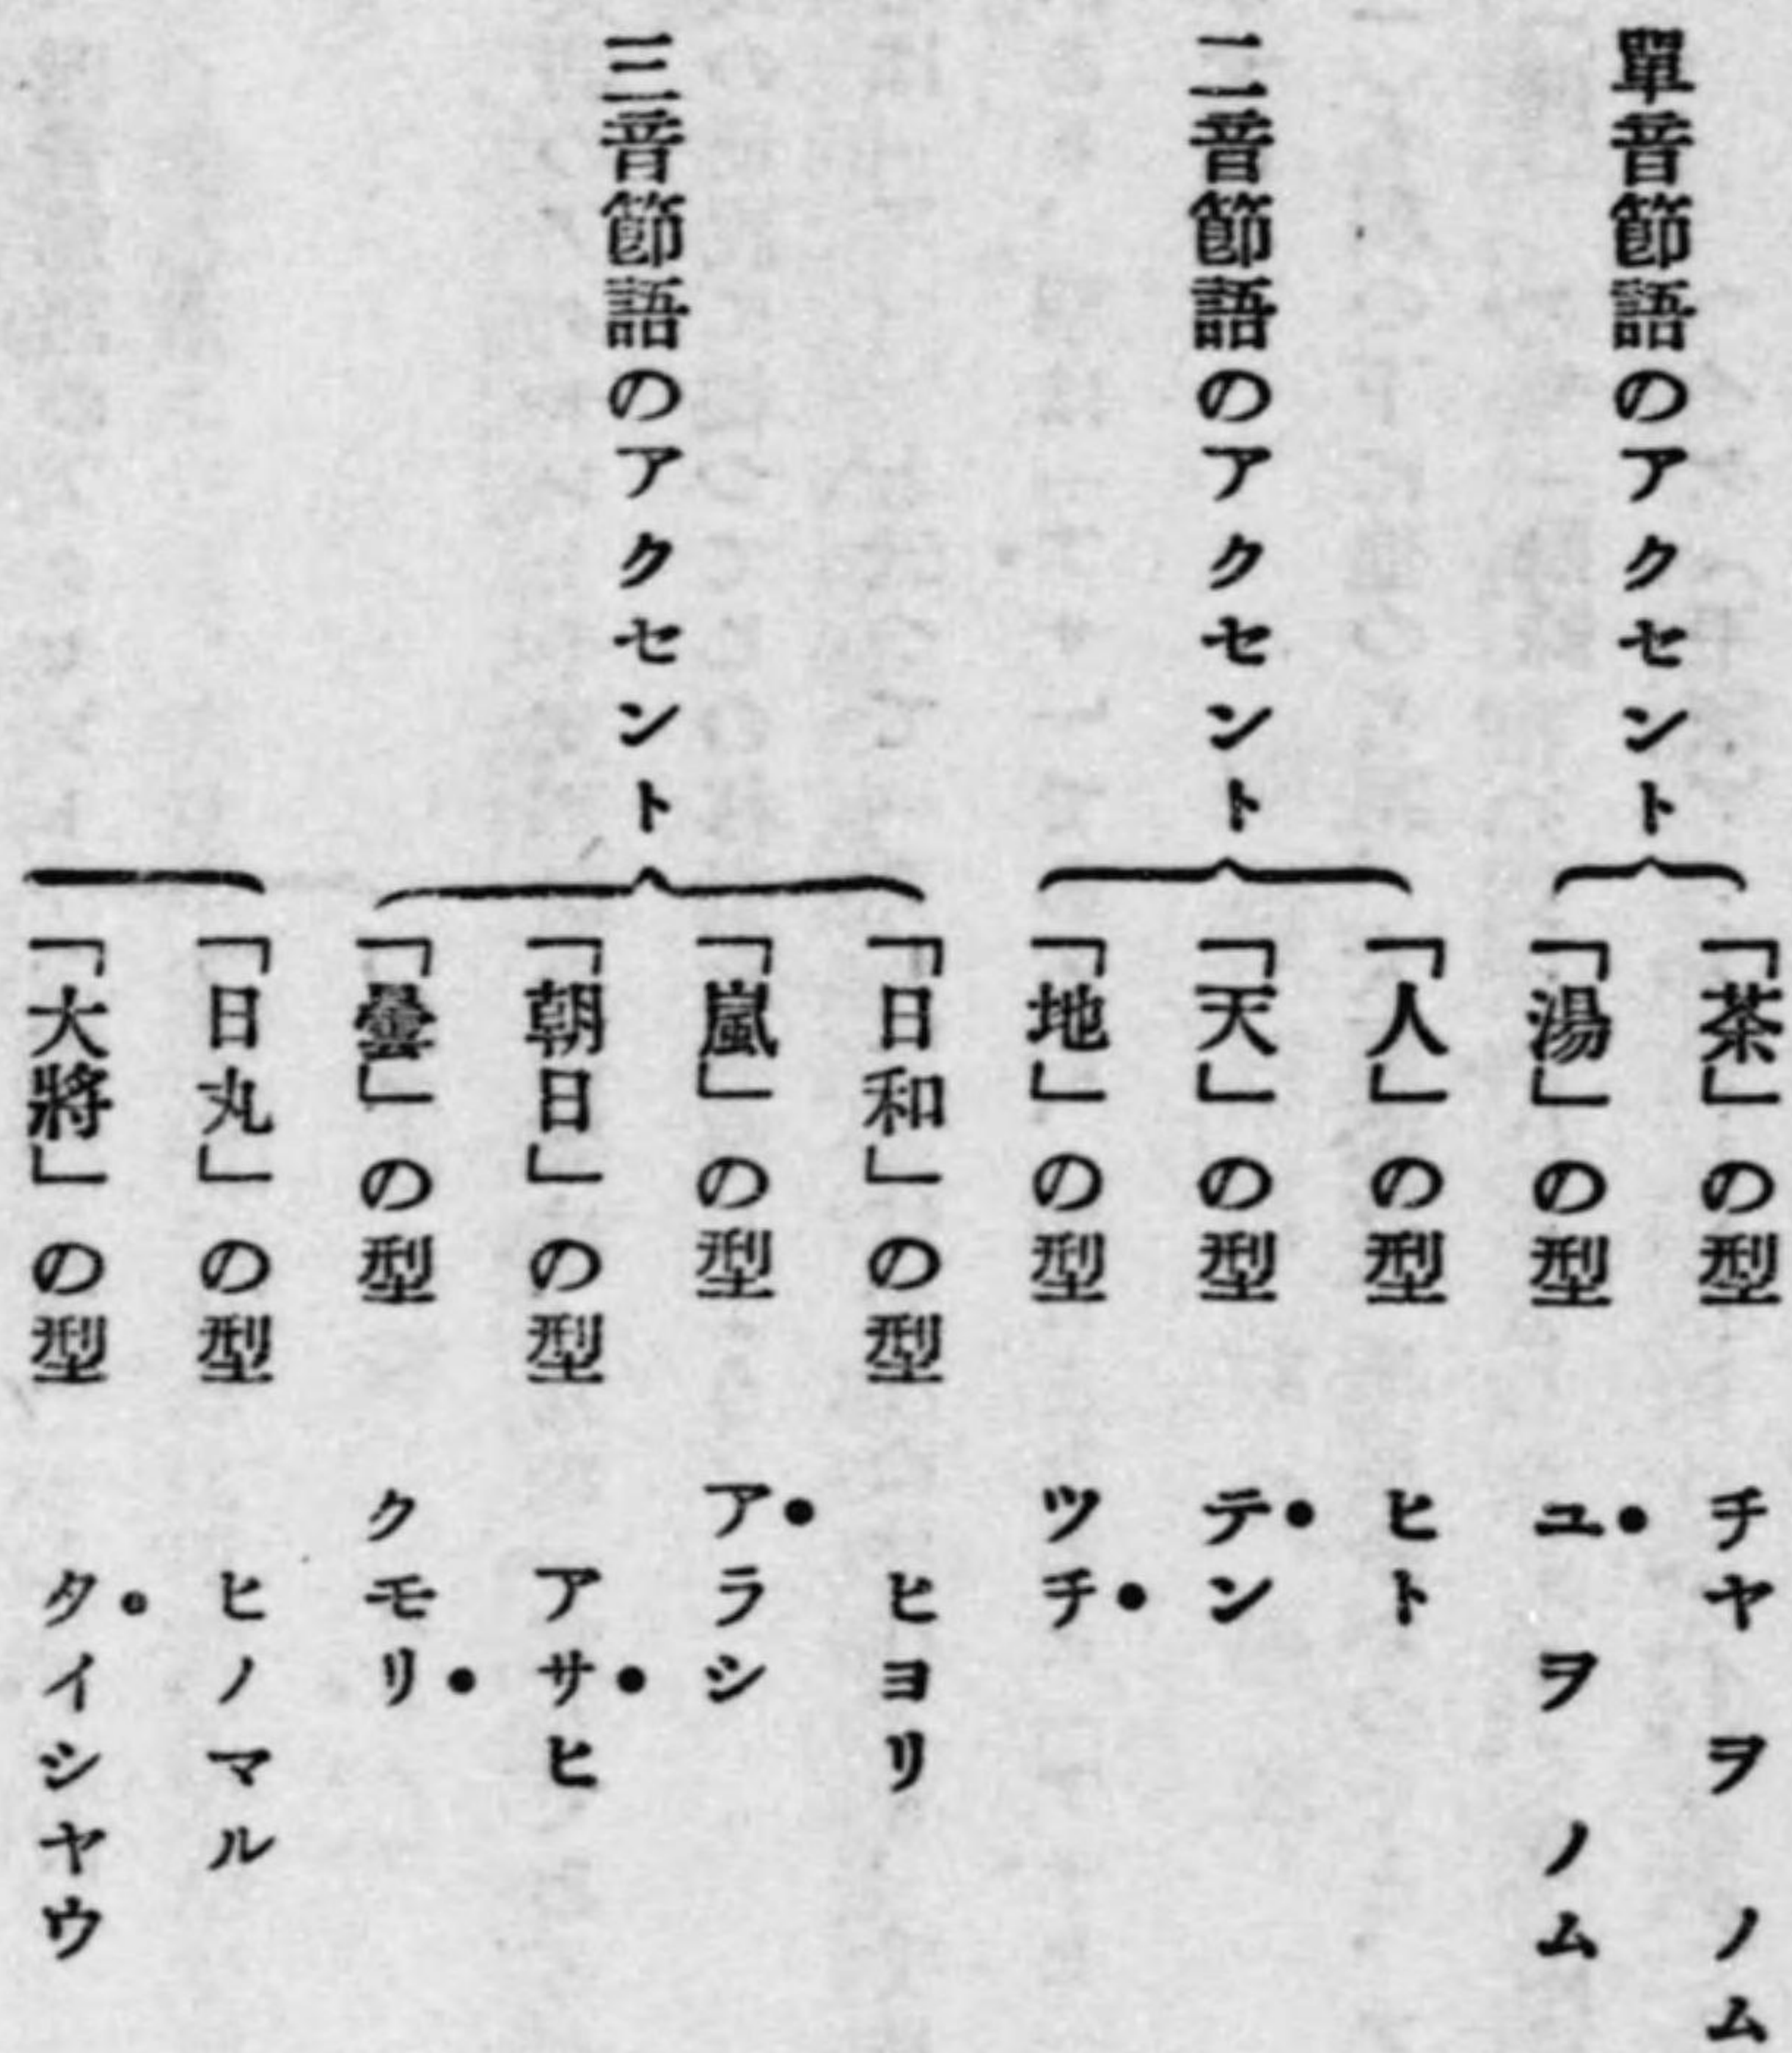 單音節語のアクセント
「茶」の型 チヤヲ ノム
「湯」の型 ユ ヲ ノム
二音節語のアクセント
「人」の型 ヒト
「天」の型 テン
「地」の型 ツチ
三音節語のアクセント
「日和」の型 ヒヨリ
「嵐」の型 アラシ
「朝日」の型 アサヒ
「曇」の型 クモリ
「日丸」の型 ヒノマル
「大將」の型 タイシヤウ